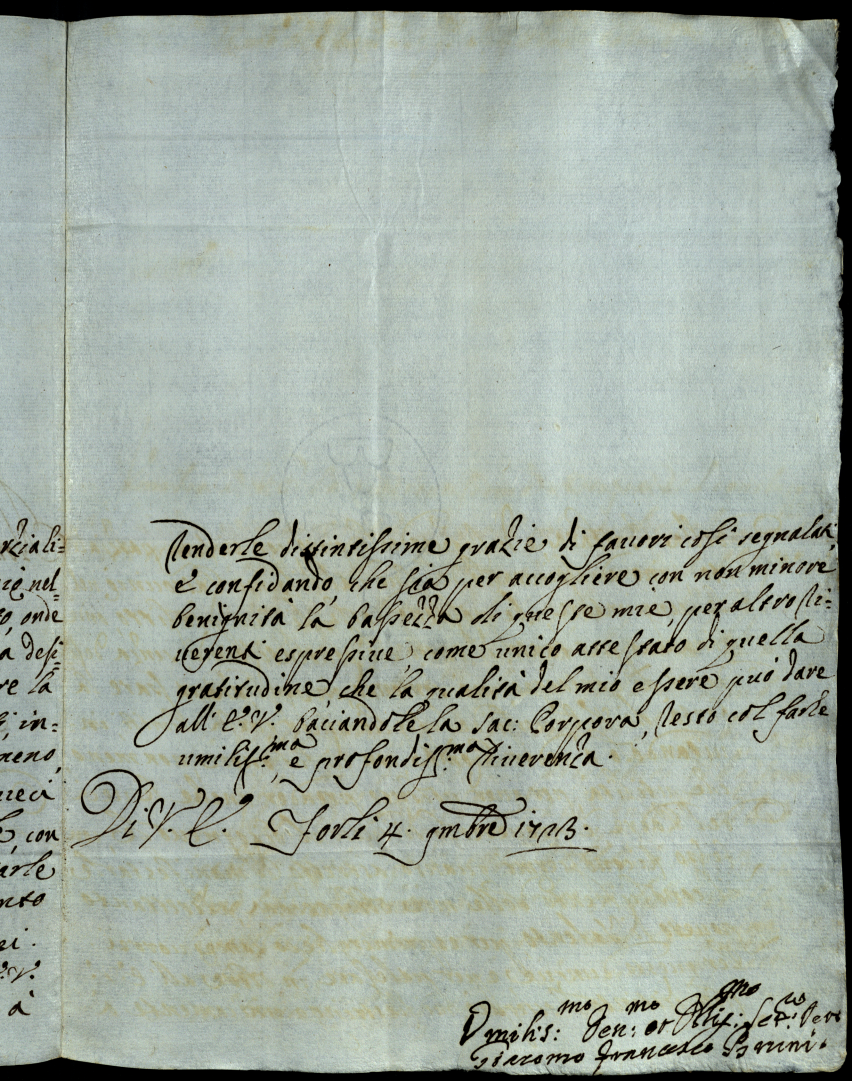 rziali-
nel-
onde
desi-
re la
in-
meno,
con
arle
nto
à
renderle distintissime grazie di favori così segnalati,
e confidando, che sia per accogliere con non minore
benignità la bassezza di queste mie, per altro ri-
verenti espressive, come unico attestato di quella
gratitudine, che la qualità del mio essere può dare
all' E. V. baciandole la sac: Porpora, resto col farle
umiliss.ma, e profondiss.ma riverenza.
Di V. E. Forlì 4. 9mbre 1723.
Vmilis:mo Den:mo et Obli:gmo Ser:re
Giacomo Francesco Brunì.